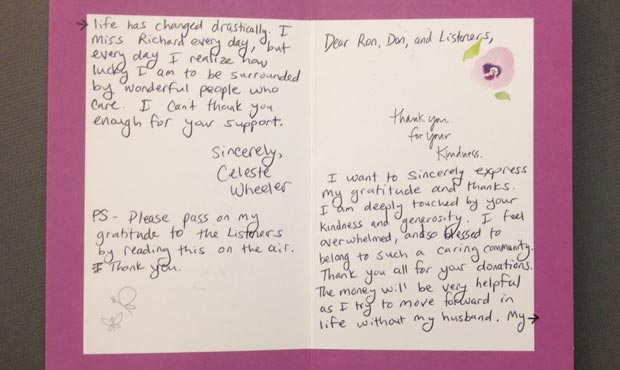 Dear Ron, Don, and Listeners,
thank you
for your
Kindness.
I want to sincerely express
my gratitude and thanks.
I am deeply touched by your
kindness and generosity. I feel
overwhelmed, and so blessed to
belong to such a caring community.
Thank you all for your donations.
The money will be very helpful
as I try to move forward in
life without my husband. My →
→ life has changed drastically. I
miss Richard every day, but
every day I realize how
lucky I am to be surrounded
by wonderful people who
care. I can't thank you
enough for your support.
Sincerely,
Celeste
Wheeler
PS - Please pass on my
gratitude to the Listeners
by reading this on the air.
I Thank you.